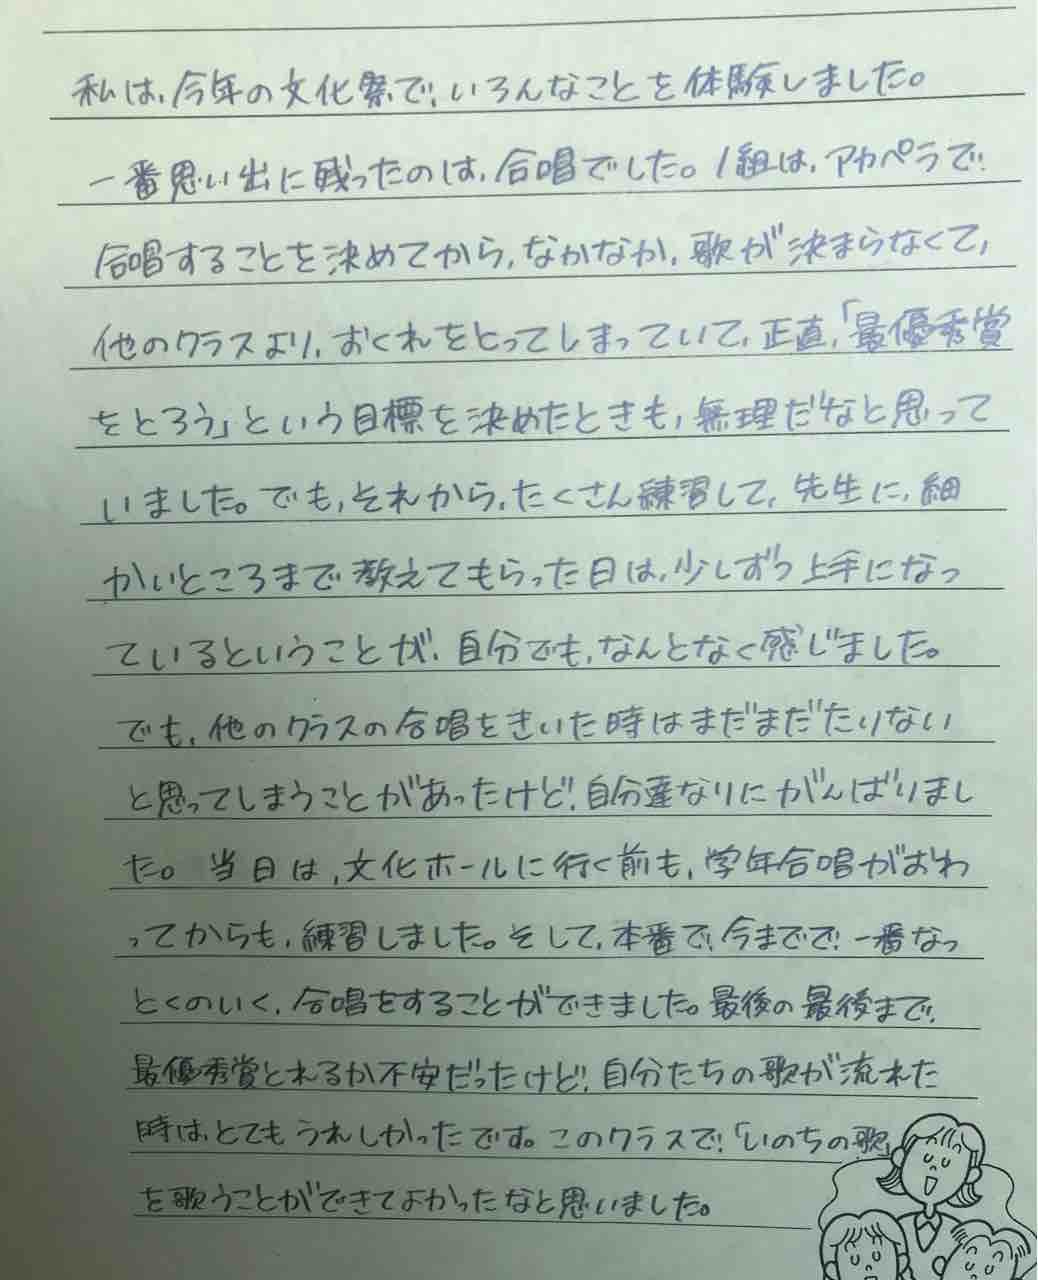 私は、今年の文化祭で、いろんなことを体験しました。
一番思い出に残ったのは、合唱でした。1組は、アカペラで、
合唱することを決めてから、なかなか、歌が決まらなくて、
他のクラスより、おくれをとってしまっていて、正直、「最優秀賞
をとろう」という目標を決めたときも、無理だなと思って
いました。でも、それから、たくさん練習して、先生に、細
かいところまで教えてもらった日は、少しずつ上手になっ
ているということが、自分でも、なんとなく感じました。
でも、他のクラスの合唱をきいた時はまだまだたりない
と思ってしまうことがあったけど、自分達なりにがんばりまし
た。当日は、文化ホールに行く前も、学年合唱がおわ
ってからも、練習しました。そして、本番で、今までで、一番なっ
とくのいく、合唱をすることができました。最後の最後まで、
最優秀賞とれるか不安だったけど、自分たちの歌が流れた
時は、とてもうれしかったです。このクラスで、「いのちの歌」
を歌うことができてよかったなと思いました。